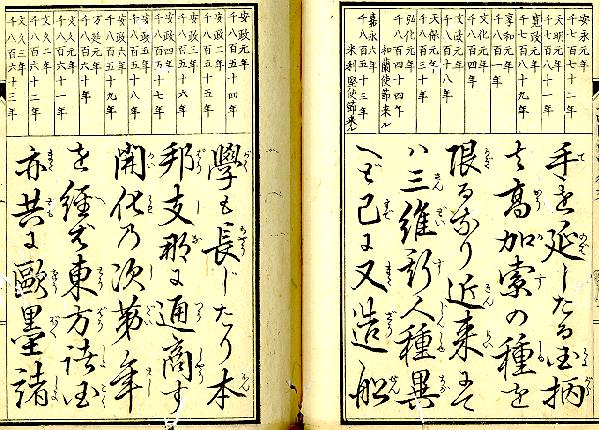 安永元年
千七百七十二年
天明元年
千七百八十一年
寛政元年
千七百八十九年
享和元年
千八百一年
文化元年
千八百四年
文政元年
千八百十八年
天保元年
千八百三十年
弘化元年
千八百四十四年
和蘭使節来ル
嘉永六年
千八百五十三年
米利堅使節来ル
手を延したる国柄
高加索の種を
限るなり近来まで
ハ三維新人種異
へども已に又造船
安政元年
千八百五十四年
安政二年
千八百五十五年
安政三年
千八百五十六年
安政四年
千八百五十七年
安政五年
安政六年
千八百五十九年
万延元年
千八百六十年
文久元年
千八百六十一年
文久二年
千八百六十二年
文久三年
千八百六十三年
學も長じたり本
邦支那に通商す
開化乃次第年
を經て東方諸国
亦共に歐墨諸